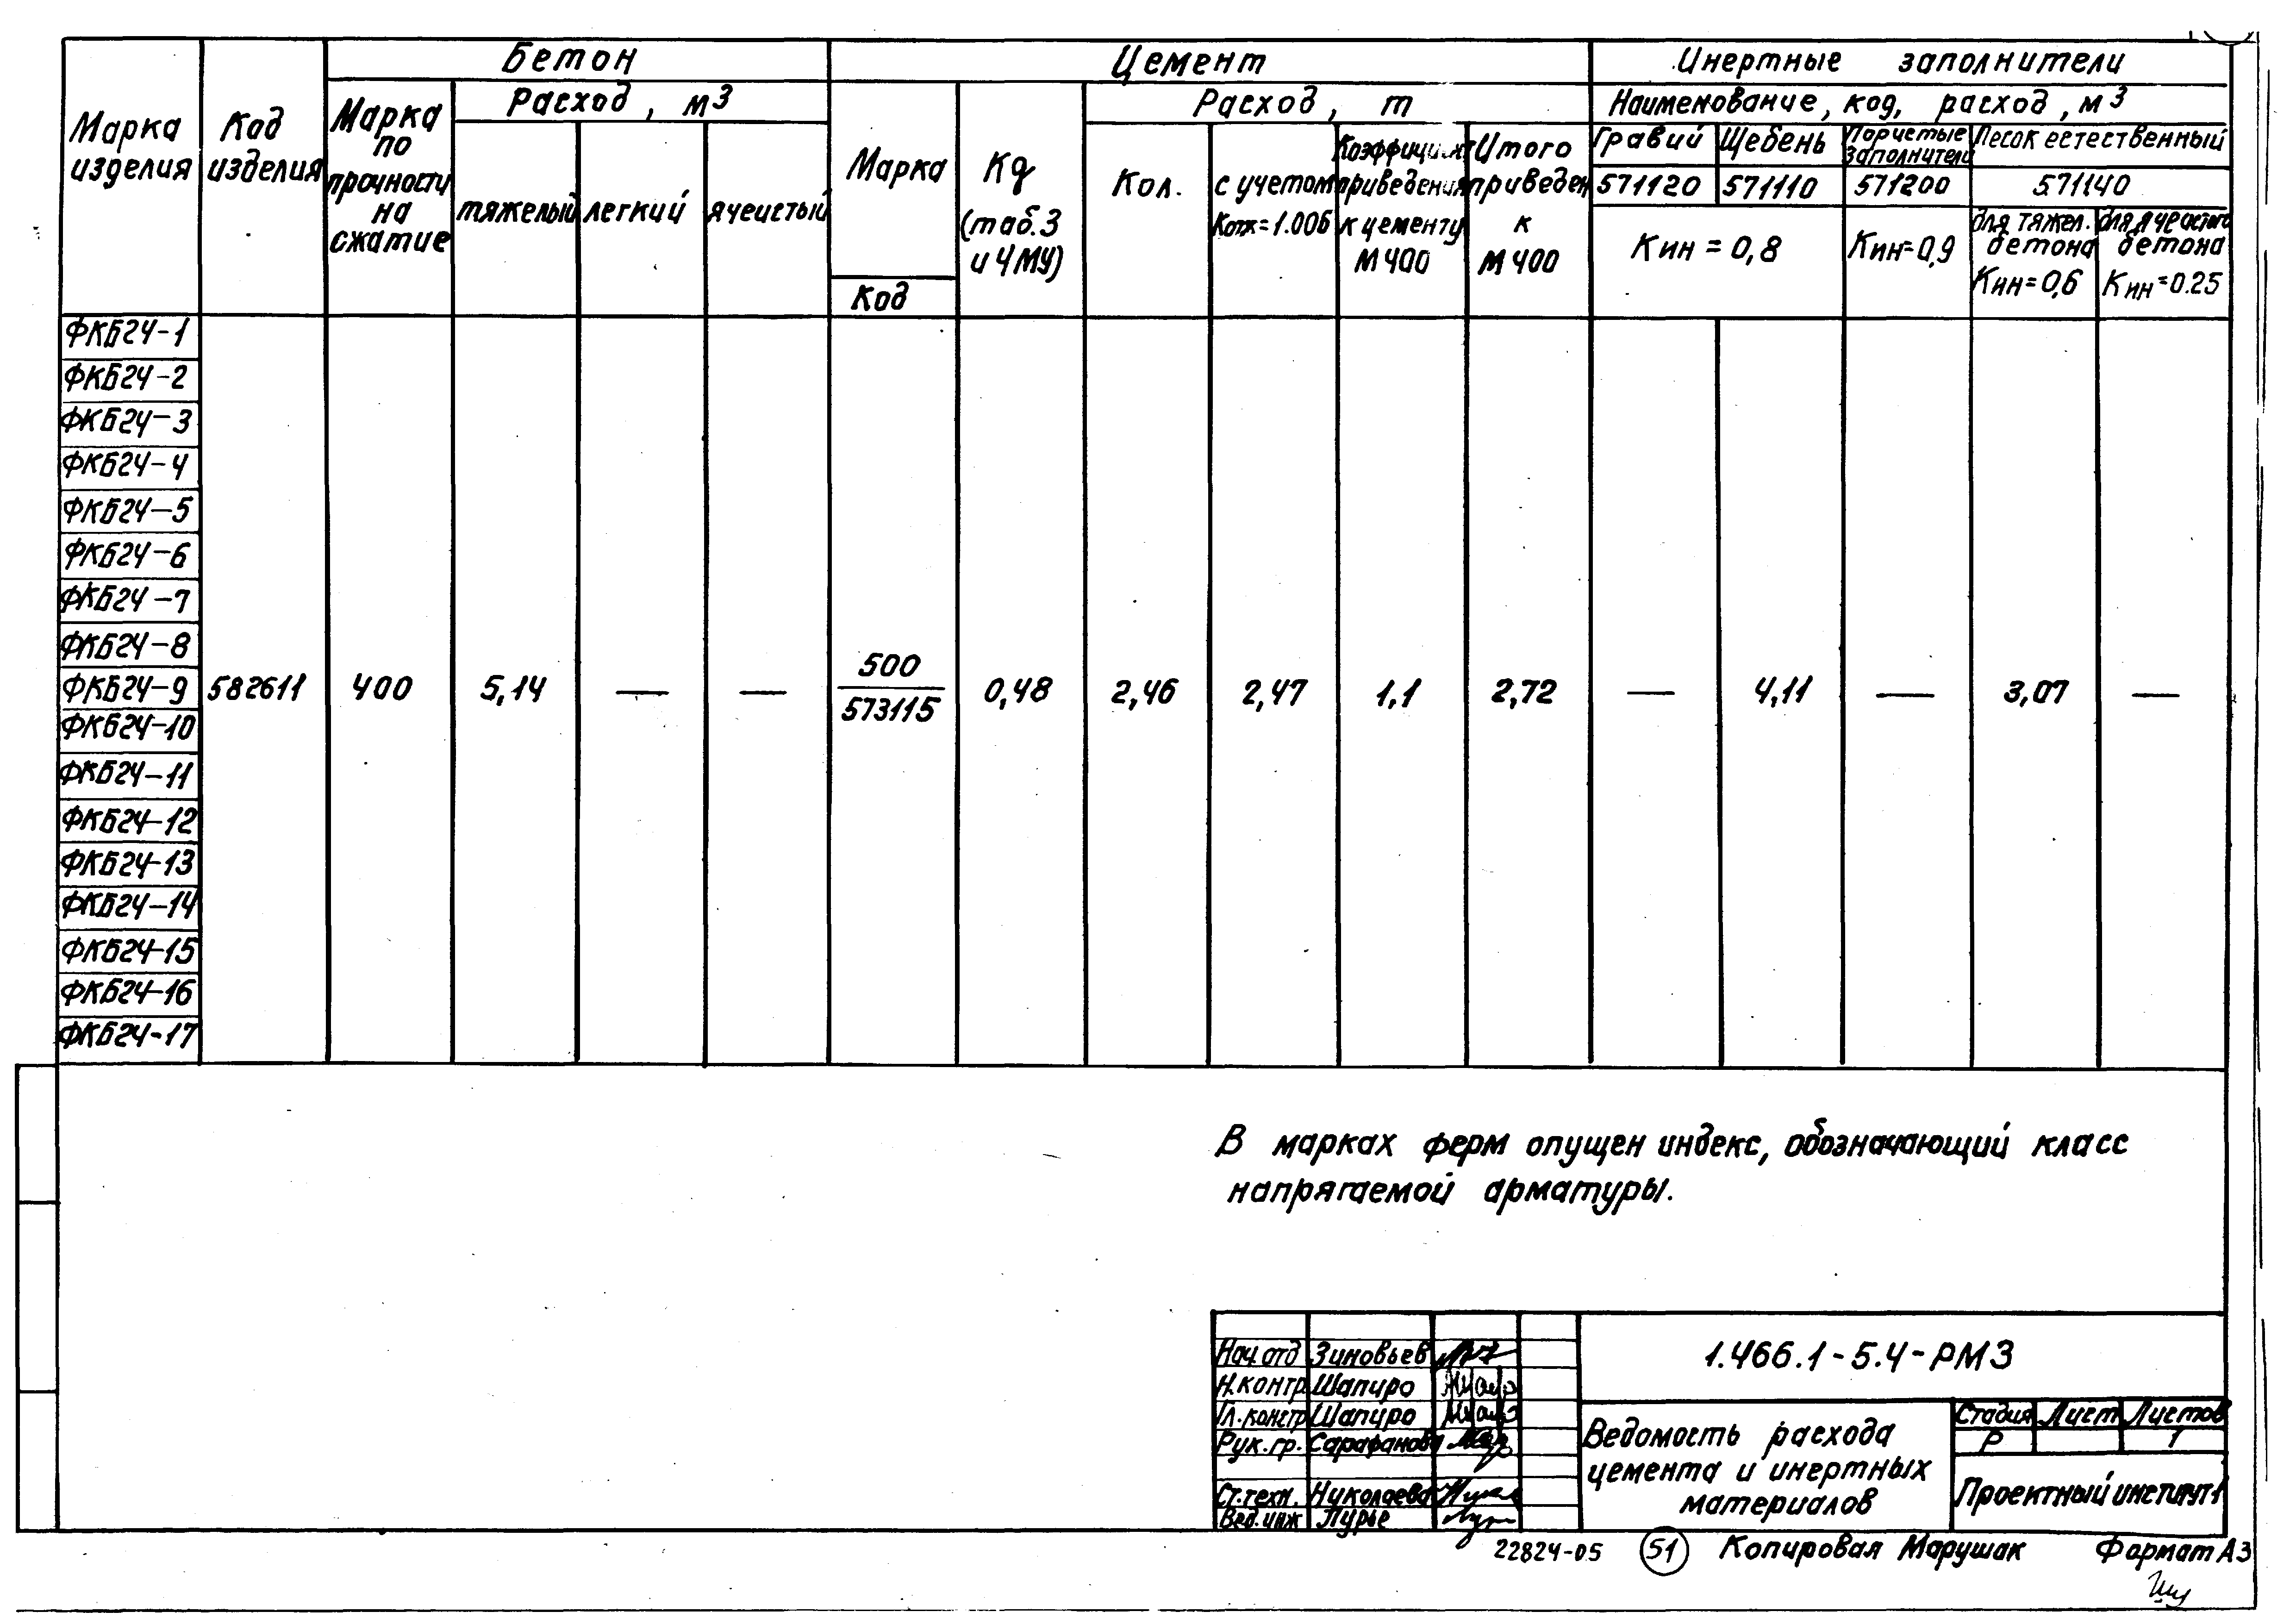 Бетон
Цемент
Инертные заполнители
Марка изделия
Код изделия
Марка по прочности на сжатие
Расход, м3
тяжелый
легкий
ячеистый
Марка
Код
Кд (таб.3 и 4 МУ)
Расход, т
Кол.
с учетом Котх=1.006
Коэффициент приведения к цементу М400
Итого приведен к М400
Наименование, код, расход, м3
Гравий
Щебень
Пористые заполнители
Песок естественный
571120
571110
571200
571140
Кин = 0,8
Кин=0,9
для тяжел. бетона Кин=0,6
для ячеистого бетона Кин=0.25
ФКБ24-1
ФКБ24-2
ФКБ24-3
ФКБ24-4
ФКБ24-5
ФКБ24-6
ФКБ24-7
ФКБ24-8
ФКБ24-9 582611 400 5,14 — — 500 0,48 2,46 2,47 1,1 2,72 — 4,11 — 3,07 —
573115
ФКБ24-10
ФКБ24-11
ФКБ24-12
ФКБ24-13
ФКБ24-14
ФКБ24-15
ФКБ24-16
ФКБ24-17
В марках ферм опущен индекс, обозначающий класс
напрягаемой арматуры.
Нач.отд Зиновьев
Н.контр Шапиро
Гл.констр Шапиро
Рук.гр. Сарафанова
Ст.техн. Николаева
Вед.инж Лурье
1.466.1-5.4-РМ3
Ведомость расхода
цемента и инертных
материалов
Стадия Лист Листов
Р 1
Проектный институт 1
22824-05 51 Копировал Марушак Формат А3